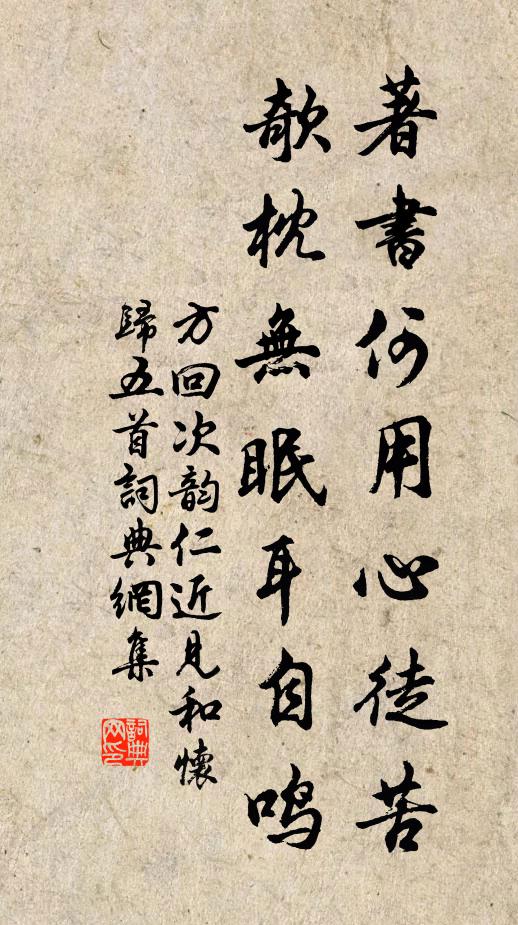 著書何用心徒苦
欹枕無眠耳自鳴
方回次韵仁近見和懷
歸五首詞典網集
詞典網印